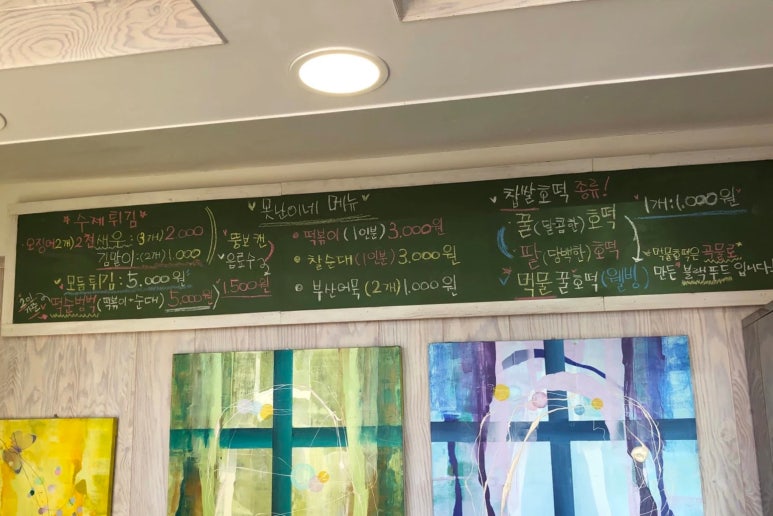 *수제튀김*
·오징어2개)2천 새우:(3개)2,000
김말이:(2개)1,000
모듬튀김:5,000원
떡순범벅(떡볶이+순대)5,000원
뚱보캔
음료수
1,500원
못난이네 메뉴
떡볶이(1인분)3,000원
찰순대(1인분)3,000원
부산어묵(2개)1,000원
찹쌀호떡 종류!
1개:1,000원
꿀(달콤한)호떡
팥(담백한)호떡
먹물꿀호떡(웰빙)
*먹물호떡은 곡물로*
만든 블랙푸드입니다~